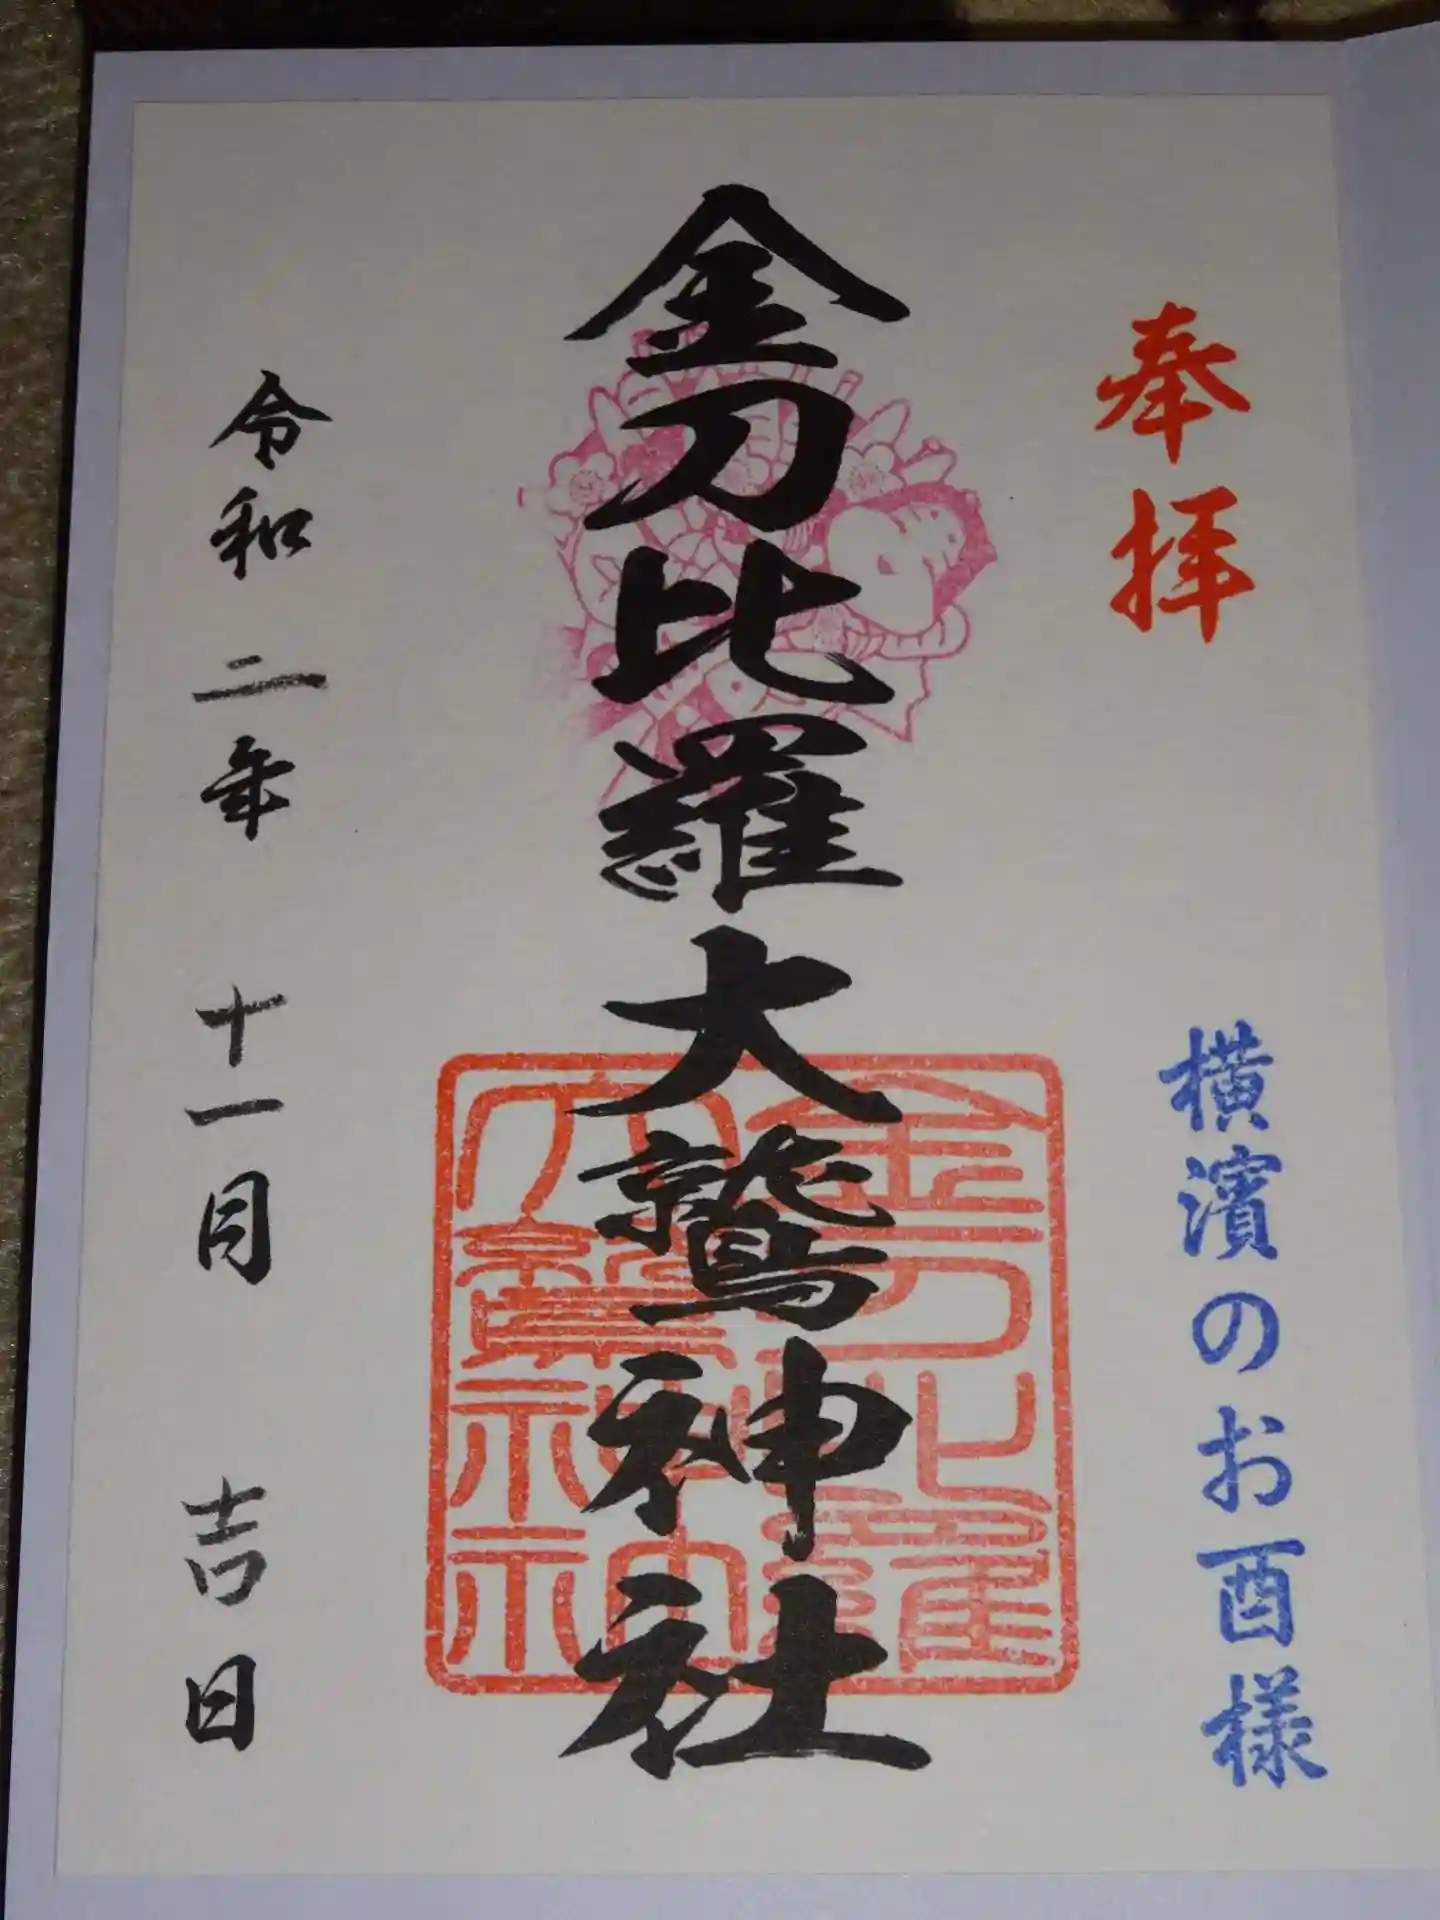 奉拝
横濱のお酉様
金刀比羅大鷲神社
金刀比羅
大鷲神社神印
令和二年 十一月 吉日